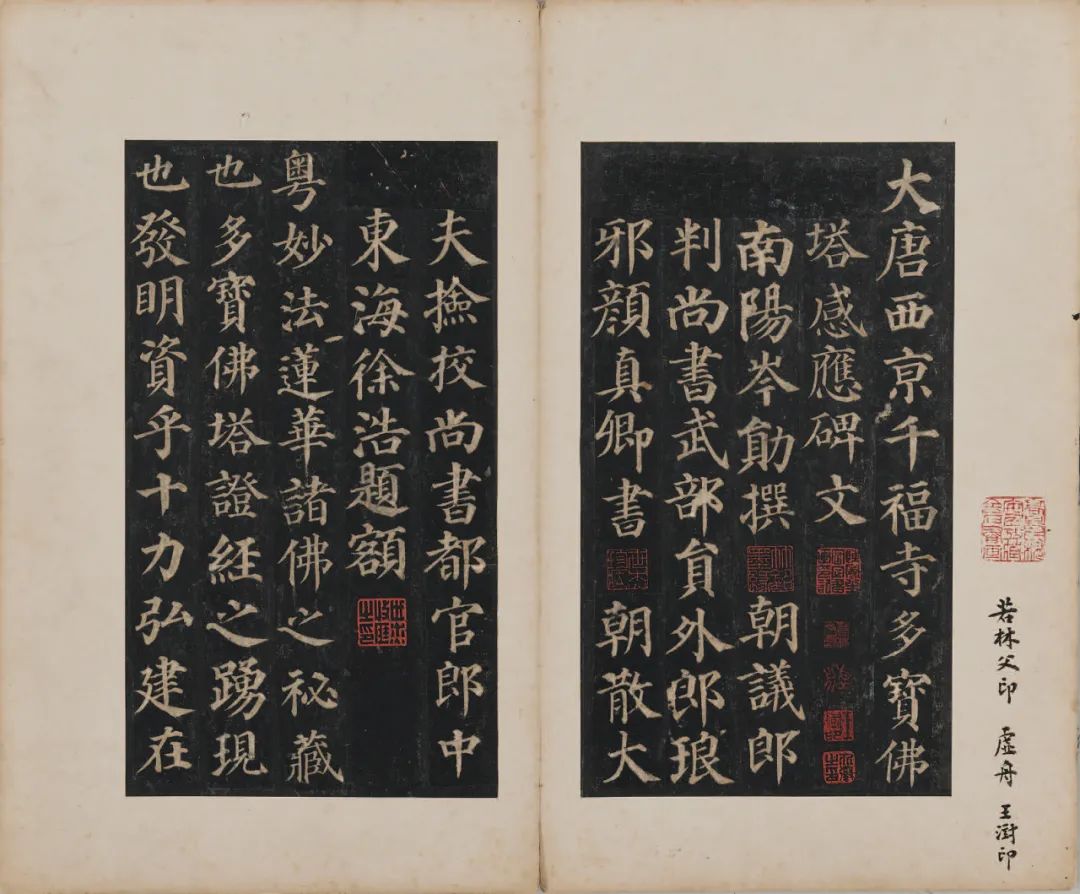 大唐西京千福寺多寶佛
塔感應碑文
南陽岑勛撰 朝議郎
判尚書武部員外郎琅
邪顔真卿書 朝散大
夫撿挍尚書都官郎中
東海徐浩題額
粵妙法蓮華諸佛之祕藏
也多寶佛塔證經之踴現
也發明資乎十力弘建在
若林父印 虛舟 王澍印